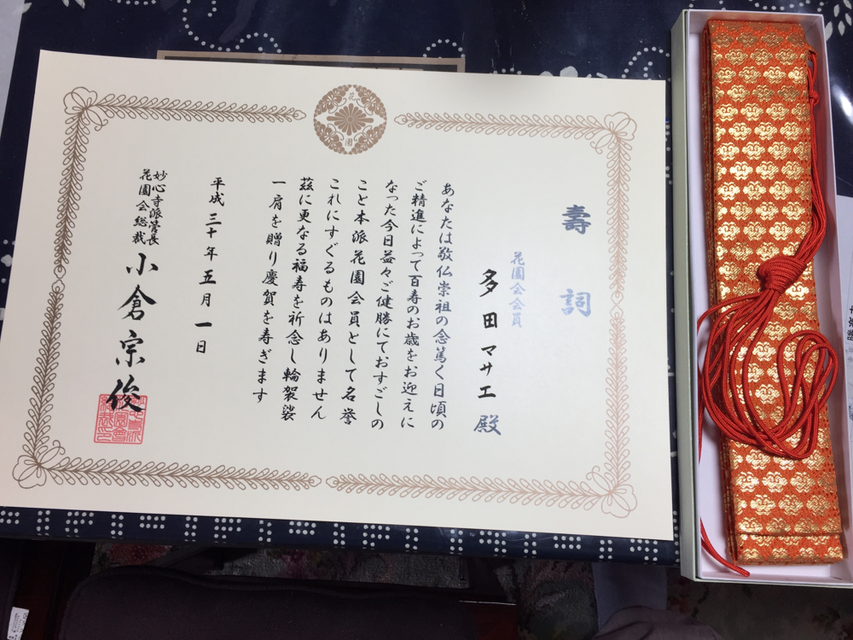 壽詞
花園会会員
多田マサエ殿
あなたは敬仏崇祖の念篤く日頃の
ご精進によって百寿のお歳をお迎えに
なった今日益々ご健勝にておすごしの
こと本派花園会員として名誉
これにすぐるものはありません
茲に更なる福寿を祈念し輪袈裟
一肩を贈り慶賀を寿ぎます
平成三十年五月一日
妙心寺派管長
花園会総裁
小倉宗俊